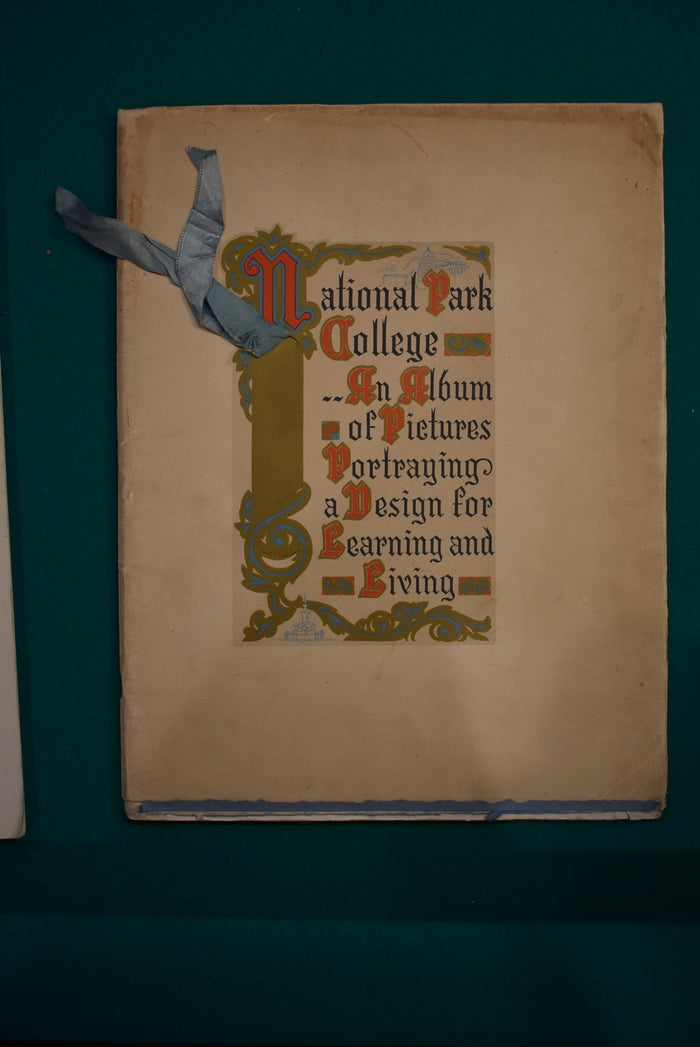 National Park
College
--An Album
of Pictures
Portraying
a Design for
Learning and
Living